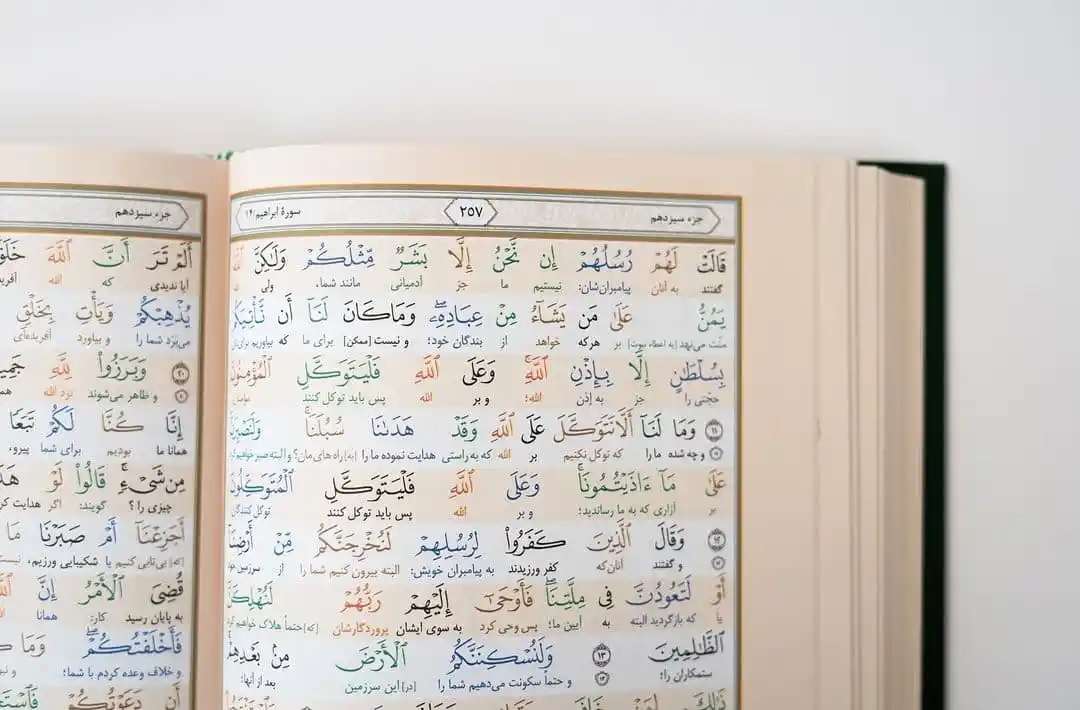 جزء سیزدهم ۲۵۷ سورة ابراهیم/۱۴
قَالَتْ لَهُمْ رُسُلُهُمْ إِن نَّحْنُ إِلَّا بَشَرٌ مِّثْلُكُمْ وَلَٰكِنَّ
گفتند به آنان پیامبران‌شان: نیستیم ما جز آدمیانی مانند شما، ولی
يَمُنُّ عَلَىٰ مَن يَشَاءُ مِنْ عِبَادِهِۦۖ وَمَا كَانَ لَنَآ أَن نَّأْتِيَكُم
منّت می‌نهد [به اعطاء نبوت] بر هرکه خواهد از بندگان خود؛ و نیست [ممکن] برای ما که بیاوریم
بِسُلْطَٰنٍ إِلَّا بِإِذْنِ ٱللَّهِۚ وَعَلَى ٱللَّهِ فَلْيَتَوَكَّلِ ٱلْمُؤْمِنُونَ
حجّتی را جز به إذن الله؛ و بر الله پس باید توکل کنند
۱۱ وَمَا لَنَآ أَلَّا نَتَوَكَّلَ عَلَى ٱللَّهِ وَقَدْ هَدَىٰنَا سُبُلَنَاۚ وَلَنَصْبِرَنَّ
و چه شده ما را که توکل نکنیم بر الله که به راستی هدایت نموده ما را [به] راه‌های‌مان؟ و البته صبر خواهیم
عَلَىٰ مَآ ءَاذَيْتُمُونَاۚ وَعَلَى ٱللَّهِ فَلْيَتَوَكَّلِ ٱلْمُتَوَكِّلُونَ
بر آزاری که به ما رساندید؛ و بر الله پس باید توکل کنند توکل‌کنندگان
۱۲ وَقَالَ ٱلَّذِينَ كَفَرُوا۟ لِرُسُلِهِمْ لَنُخْرِجَنَّكُم مِّنْ أَرْضِنَآ
و گفتند آنان‌که کفر ورزیدند به پیامبران خویش: البته بیرون کنیم شما را از سرزمین
أَوْ لَتَعُودُنَّ فِى مِلَّتِنَاۖ فَأَوْحَىٰٓ إِلَيْهِمْ رَبُّهُمْ لَنُهْلِكَنَّ
یا که بازگردید البته به آیین ما؛ پس وحی کرد به سوی ایشان پروردگارشان [که] حتماً هلاک خواهیم
ٱلظَّٰلِمِينَ ۱۳ وَلَنُسْكِنَنَّكُمُ ٱلْأَرْضَ مِنۢ بَعْدِهِمْ
ستمکاران را؛ و حتماً سکونت می‌دهیم شما را [در] این سرزمین بعد از آنها؛
ذَٰلِكَ لِمَنْ خَافَ
جزء سیزدهم
أَلَمْ تَرَ أَنَّ ٱللَّهَ
آیا ندیدی که الله
يُذْهِبْكُمْ وَيَأْتِ بِخَلْقٍ
می‌بَرَد شما را و بیاورد آفریده‌ای
۲۰ وَبَرَزُوا۟ لِلَّهِ
و ظاهر می‌شوند نزد الله
إِنَّا كُنَّا لَكُمْ تَبَعًا
همانا ما بودیم برای شما پیرو،
مِن شَىْءٍۚ قَالُوا۟ لَوْ
چیزی را؟ گویند: اگر هدایت
أَجَزِعْنَآ أَمْ صَبَرْنَا مَا
[که] بی‌تابی کنیم یا شکیبایی ورزیم،
قُضِىَ ٱلْأَمْرُ إِنَّ
به پایان رسید کار: همانا
فَأَخْلَفْتُكُمْۖ وَمَا
و خلاف وعده کردم با شما؛
أَن دَعَوْتُكُمْ